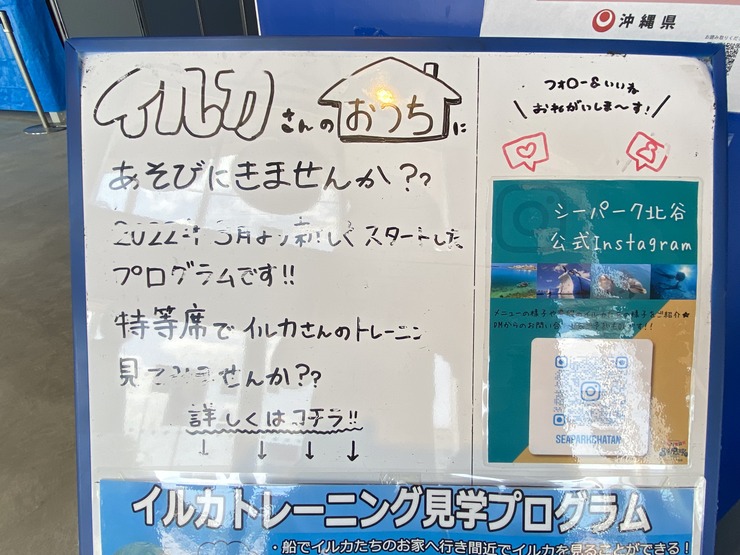 沖縄県
イルカさんのおうちに
あそびにきませんか??
2022年3月より新しくスタートした
プログラムです!!
特等席でイルカさんのトレーニン
見てみませんか??
詳しくはコチラ!!
↓ ↓ ↓ ↓
フォロー&いいね
\おねがいしま〜す!/
シーパーク北谷
公式Instagram
メニューの様子や
の様子をご紹介★
DMからのお問い合
SEAPARKCHATAN
イルカトレーニング見学プログラム
・船でイルカたちのお家へ行き間近でイルカを見ることができる!